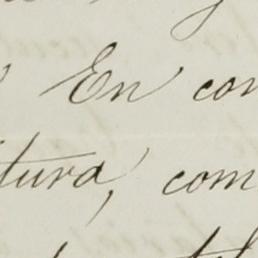 En con
tura, com